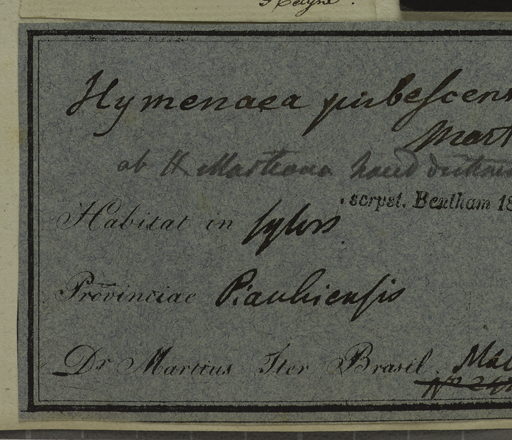 Hymenaea pubescens
Mart
ab H. Martiana haud
scrpst. Bentham 18
Habitat in sylvis
Provinciae Piauhiensis
Dr Martius Iter Brasil. Mai